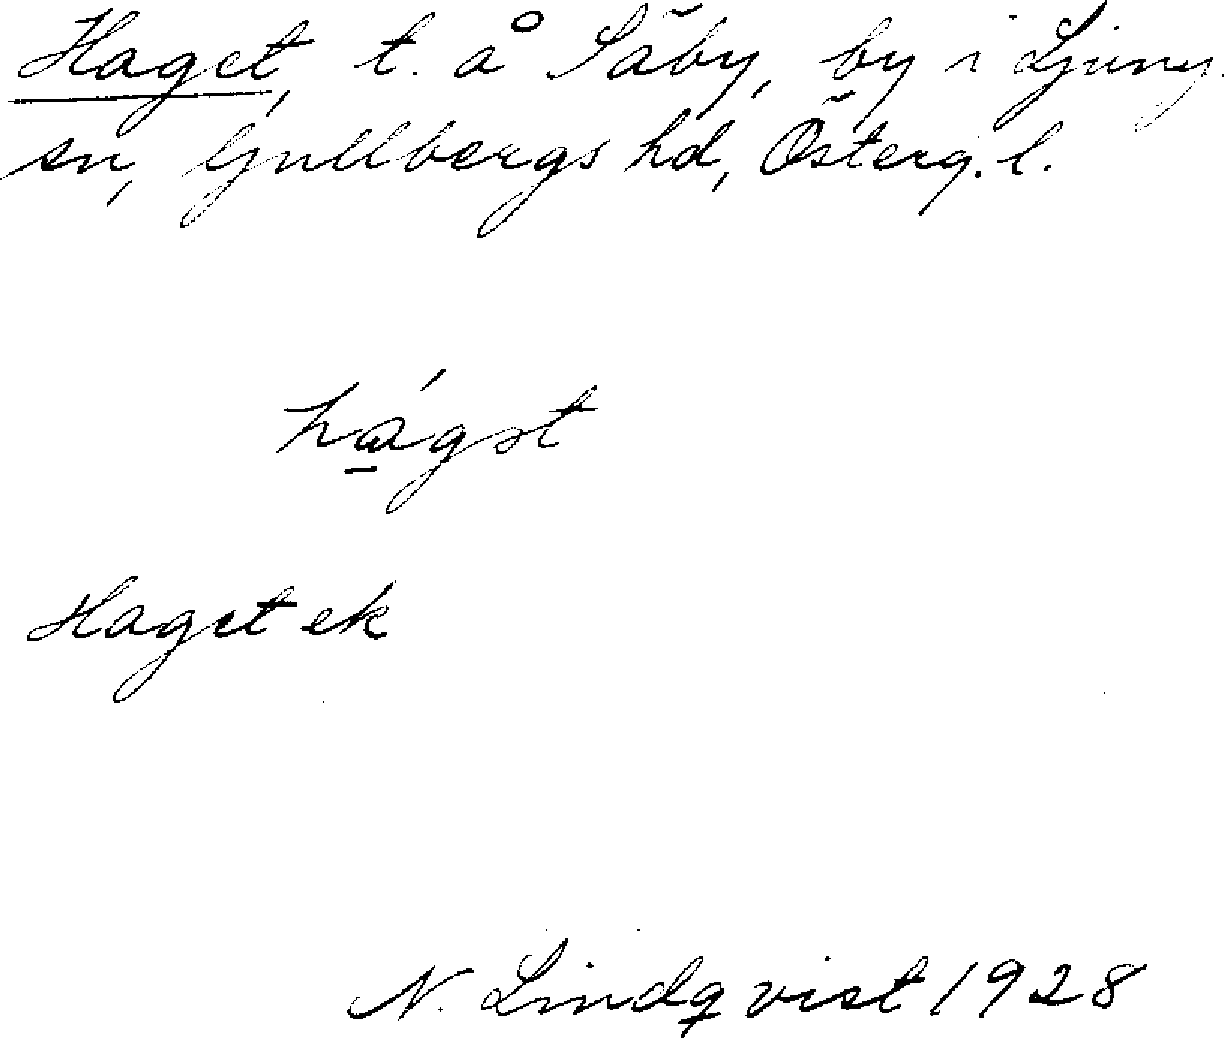 Haget, t. å Säby, by i Ljungs
sn, Gullbergs hd, Österg. l.
Haget ek
N. Lindqvist 1928